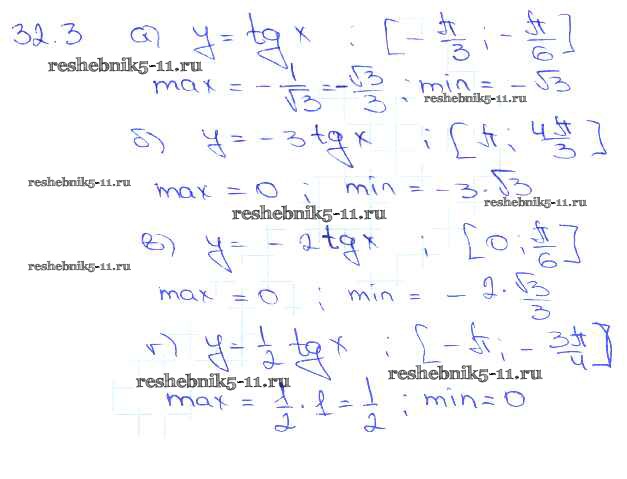 32.3 а) y = tg x ; [-π/3 ; -π/6]
reshebnik5-11.ru
max = -1/√3 = -√3/3 ; min = -√3
reshebnik5-11.ru
б) y = -3 tg x ; [π ; 4π/3]
reshebnik5-11.ru
max = 0 ; min = -3·√3
reshebnik5-11.ru
reshebnik5-11.ru
в) y = -2 tg x ; [0 ; π/6]
reshebnik5-11.ru
max = 0 ; min = -2·√3/3
г) y = 1/2 tg x ; [-π ; -3π/4]
reshebnik5-11.ru
reshebnik5-11.ru
max = 1/2 · 1 = 1/2 ; min = 0